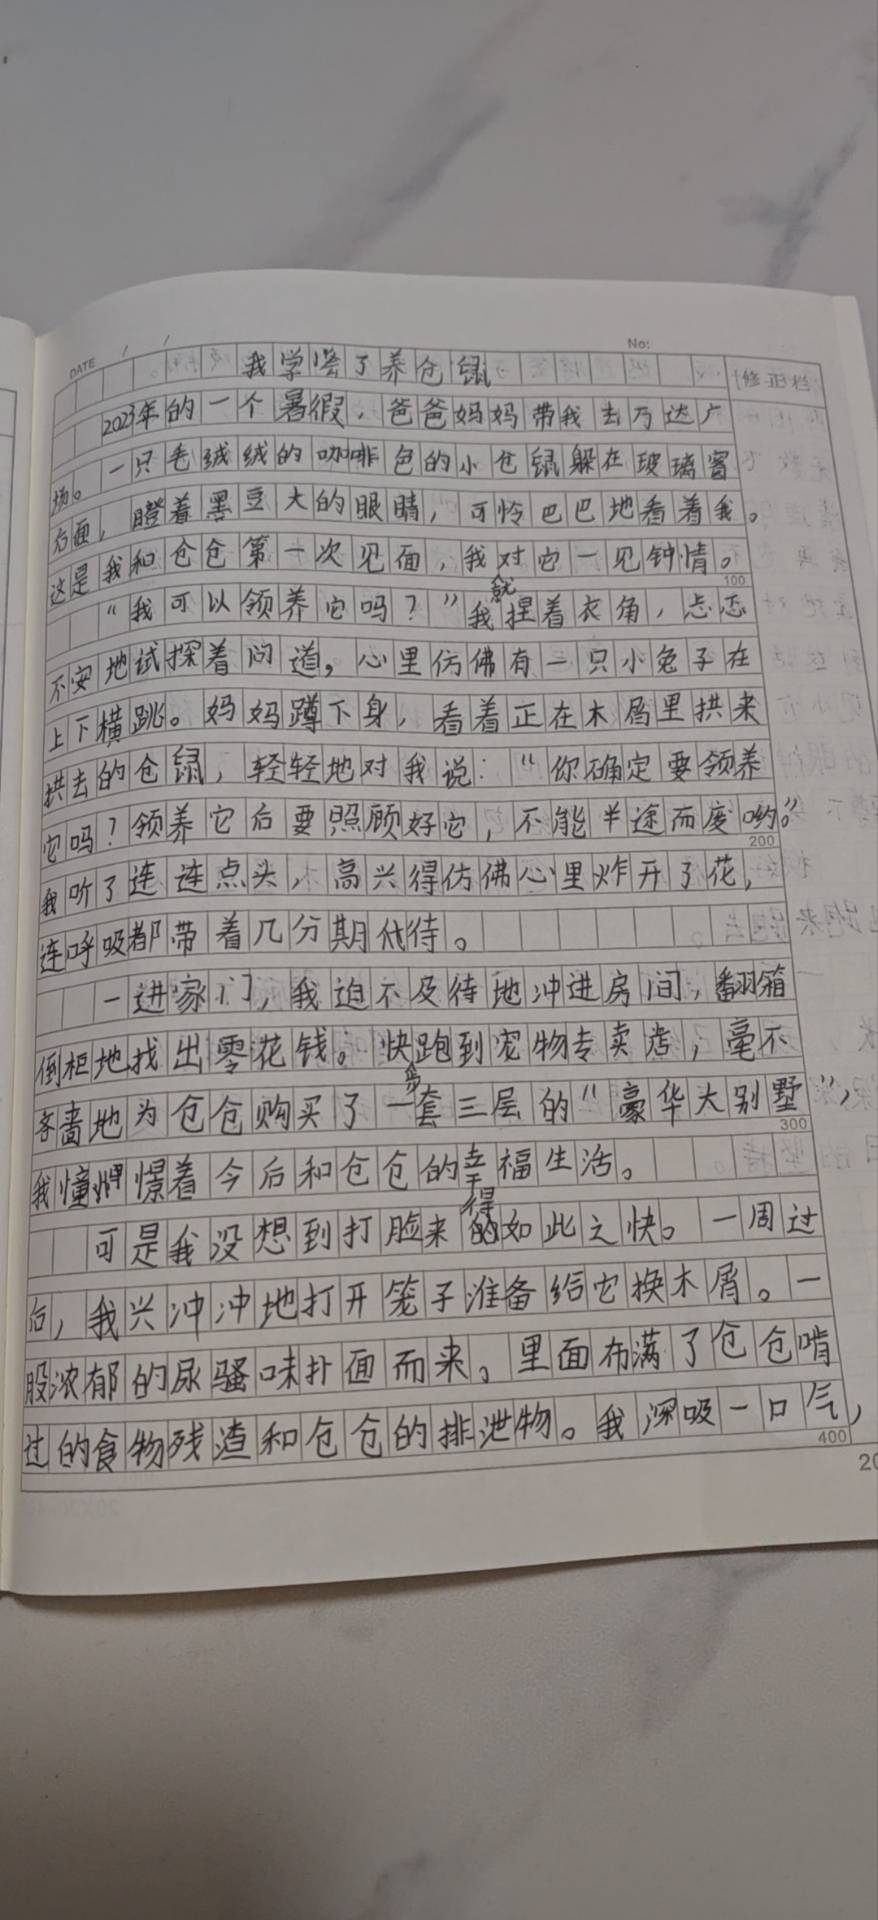 DATE / / No:
我学会了养仓鼠
修正栏
2023年的一个暑假，爸爸妈妈带我去万达广
场。一只毛绒绒的咖啡色的小仓鼠躲在玻璃窗
右面，瞪着黑豆大的眼睛，可怜巴巴地看着我。
这是我和仓仓第一次见面，我对它一见钟情。
100
“我可以领养它吗？”我就捏着衣角，忐忑
不安地试探着问道，心里仿佛有一只小兔子在
上下横跳。妈妈蹲下身，看着正在木屑里拱来
拱去的仓鼠，轻轻地对我说：“你确定要领养
它吗？领养它后要照顾好它，不能半途而废哟。”
200
我听了连连点头，高兴得仿佛心里炸开了花，
连呼吸都带着几分期待。
一进家门，我迫不及待地冲进房间，翻箱
倒柜地找出零花钱。快步跑到宠物专卖店，毫不
吝啬地为仓仓购买了一套三层的“豪华大别墅”，
300
我憧憬着今后和仓仓的幸福生活。
可是我没想到打脸来得如此之快。一周过
后，我兴冲冲地打开笼子准备给它换木屑。一
股浓郁的尿骚味扑面而来。里面布满了仓仓啃
过的食物残渣和仓仓的排泄物。我深吸一口气，
400